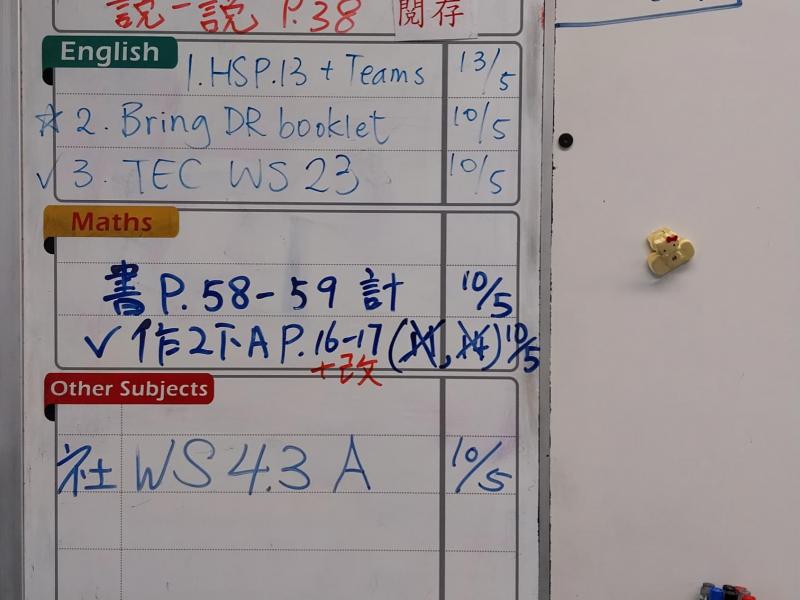 說一說 P.38 閱存
English
1. HSP.13 + Teams 13/5
☆ 2. Bring DR booklet 10/5
✓ 3. TEC WS 23 10/5
Maths
書 P. 58-59 計 10/5
✓ 作2下A P. 16-17 ( , ) 10/5
+改
Other Subjects
社 WS 4.3 A 10/5